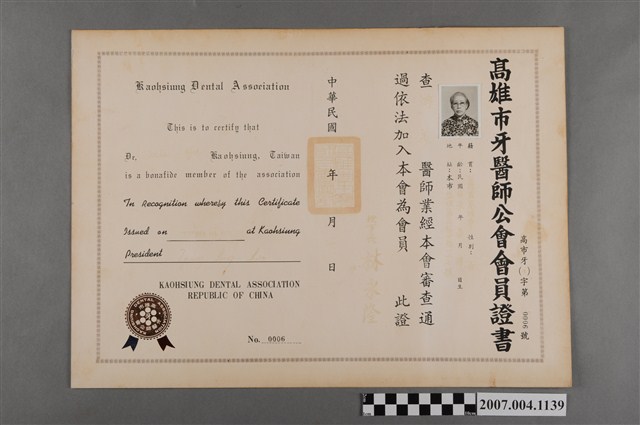 高雄市牙醫師公會會員證書
高市牙(  )字第 0006 號
籍貫： 性別：
年齡：民國 年 月 日生
地址：本市
查 醫師業經本會審查通
過依法加入本會為會員 此證
中華民國 年 月 日
Kaohsiung Dental Association
This is to certify that
Dr. Kaohsiung, Taiwan
is a bonafide member of the association
In Recognition whereby this Certificate
Issued on at Kaohsiung
President
KAOHSIUNG DENTAL ASSOCIATION
REPUBLIC OF CHINA
No. 0006
2007.004.1139